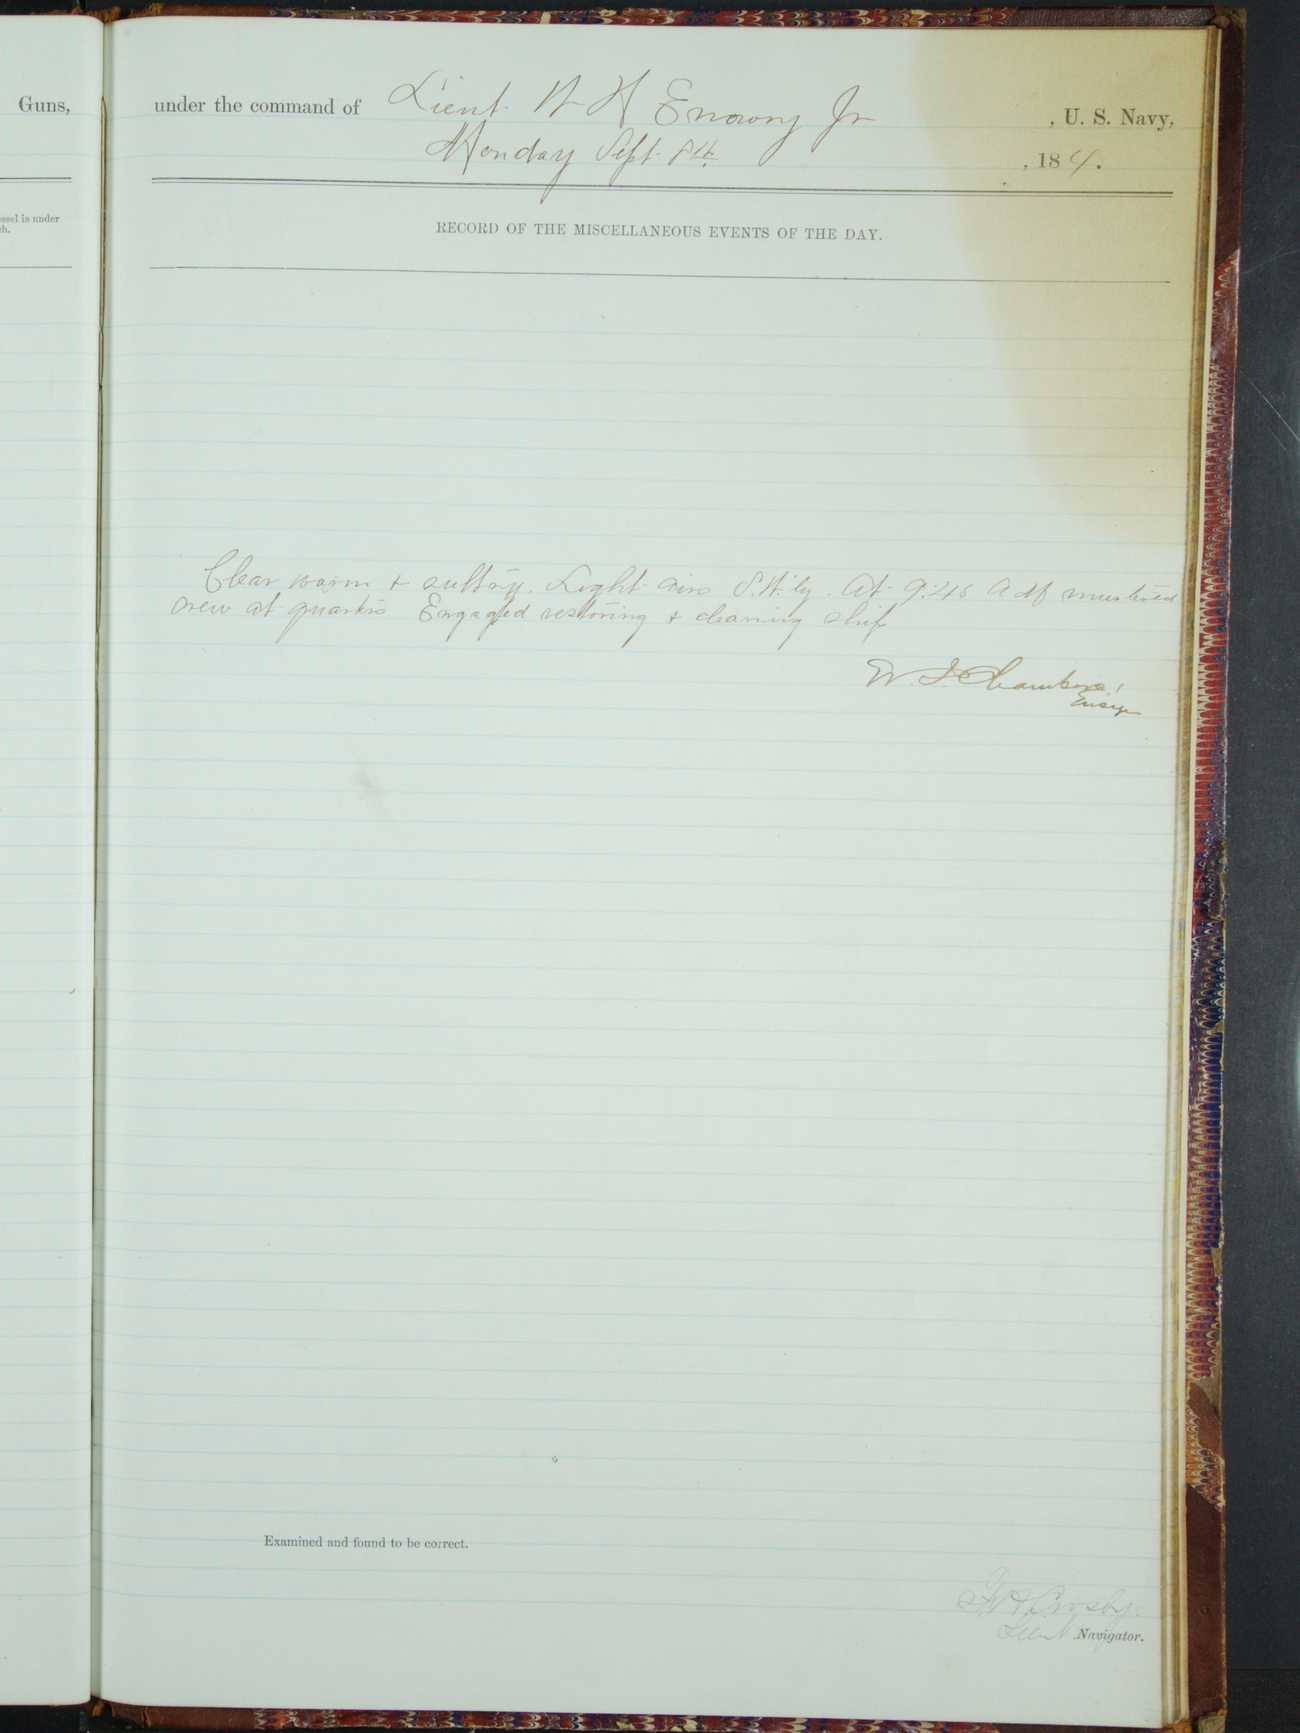 Guns,
under the command of Lieut. W H Emory Jr , U. S. Navy,
Monday Sept. 8th , 184.
essel is under
ch.
RECORD OF THE MISCELLANEOUS EVENTS OF THE DAY.
Clear warm + sultry. Light airs S.W.'ly. At 9:45 A M mustered
crew at quarters Engaged restoring + cleaning ship
W. I. Chambers
Ensign
Examined and found to be correct.
Crosby
Lieut Navigator.